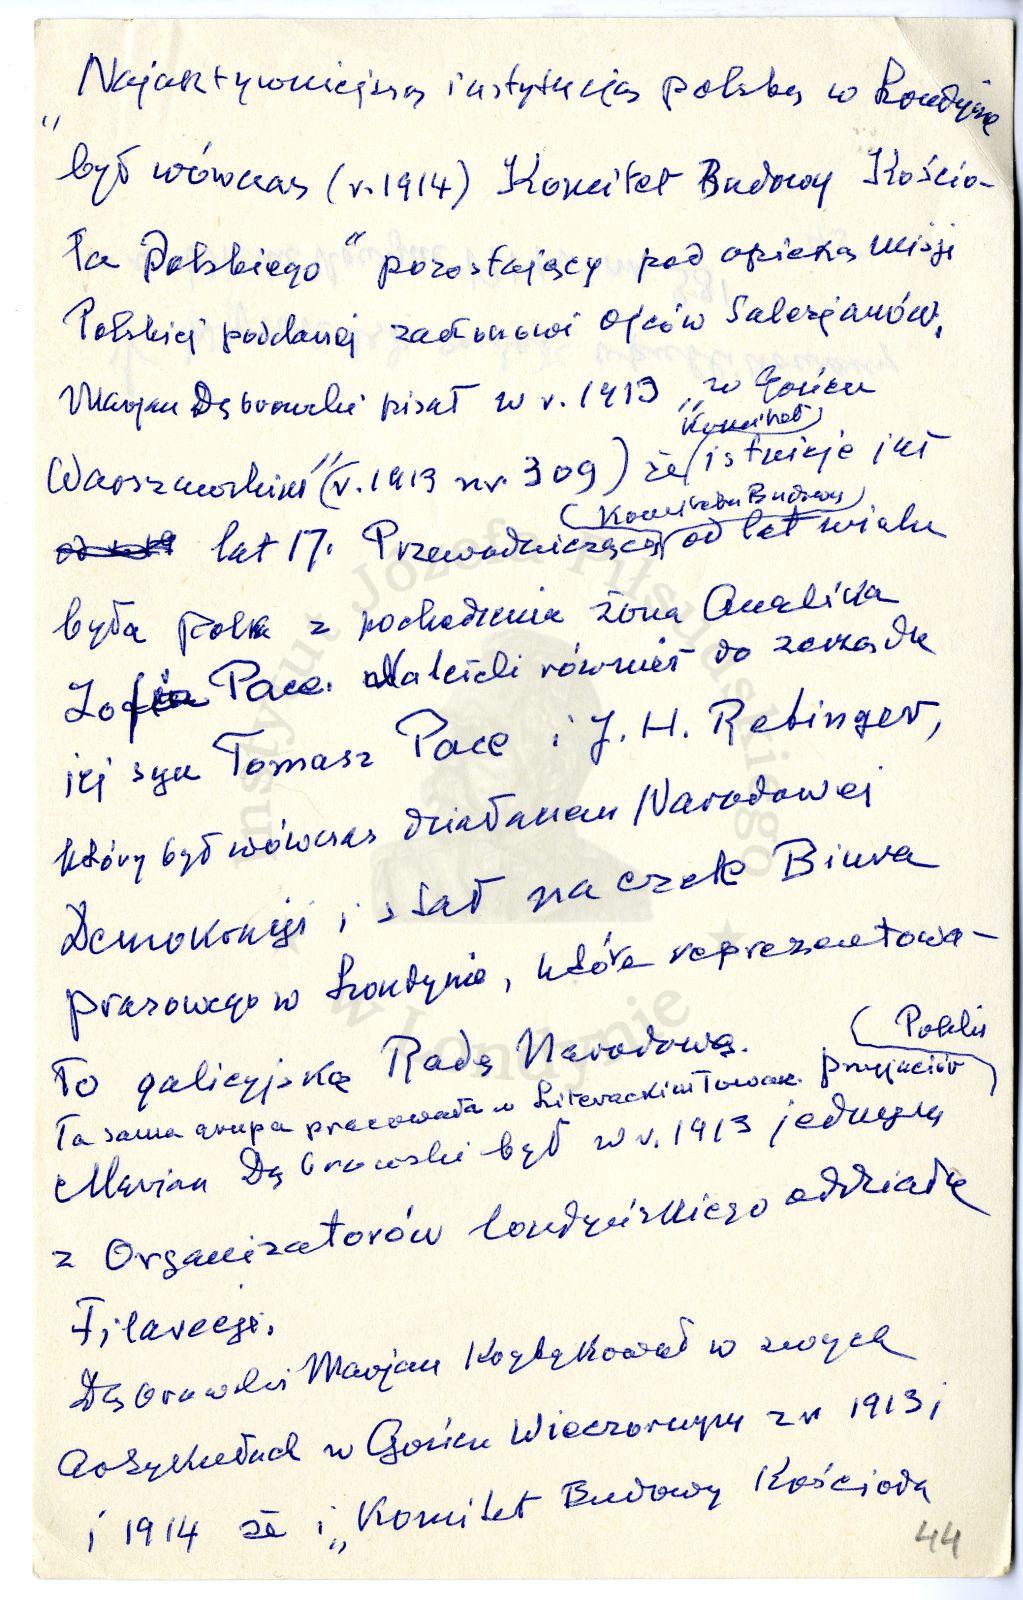 Najaktywniejszą instytucją polską w Londynie
„był wówczas (r. 1914) Komitet Budowy Kościo-
ła Polskiego" pozostający pod opieką Misji
Polskiej poddanej zadłonowi Ojców Salezjanów,
Marjan Dąbrowski pisał w r. 1913 „w Gońcu
Warszawskim" (r. 1913 nr. 309) że (Komitet) istnieje już
lat 17. Przewodniczącą (Komitetu Budowy) od lat wielu
była Polka z pochodzenia żona Anglika
Zofia Pace. Należeli również do zarządu
jej syn Tomasz Pace i J. H. Retinger,
który był wówczas działaczem Narodowej
Demokracji i stał na czele Biura
prasowego w Londynie, które reprezentowa-
ło galicyjską Radę Narodową.
Ta sama grupa pracowała w Literackim Towarz. przyjaciół (Polski)
Marjan Dąbrowski był w r. 1913 jednym
z Organizatorów londyńskiego oddziału
Filarecji.
Dąbrowski Marjan krytykował w swych
artykułach w Gońcu Wieczornym z r 1913 i
i 1914 że i „Komitet Budowy Kościoła
44
Instytut Józefa Piłsudskiego
w Londynie